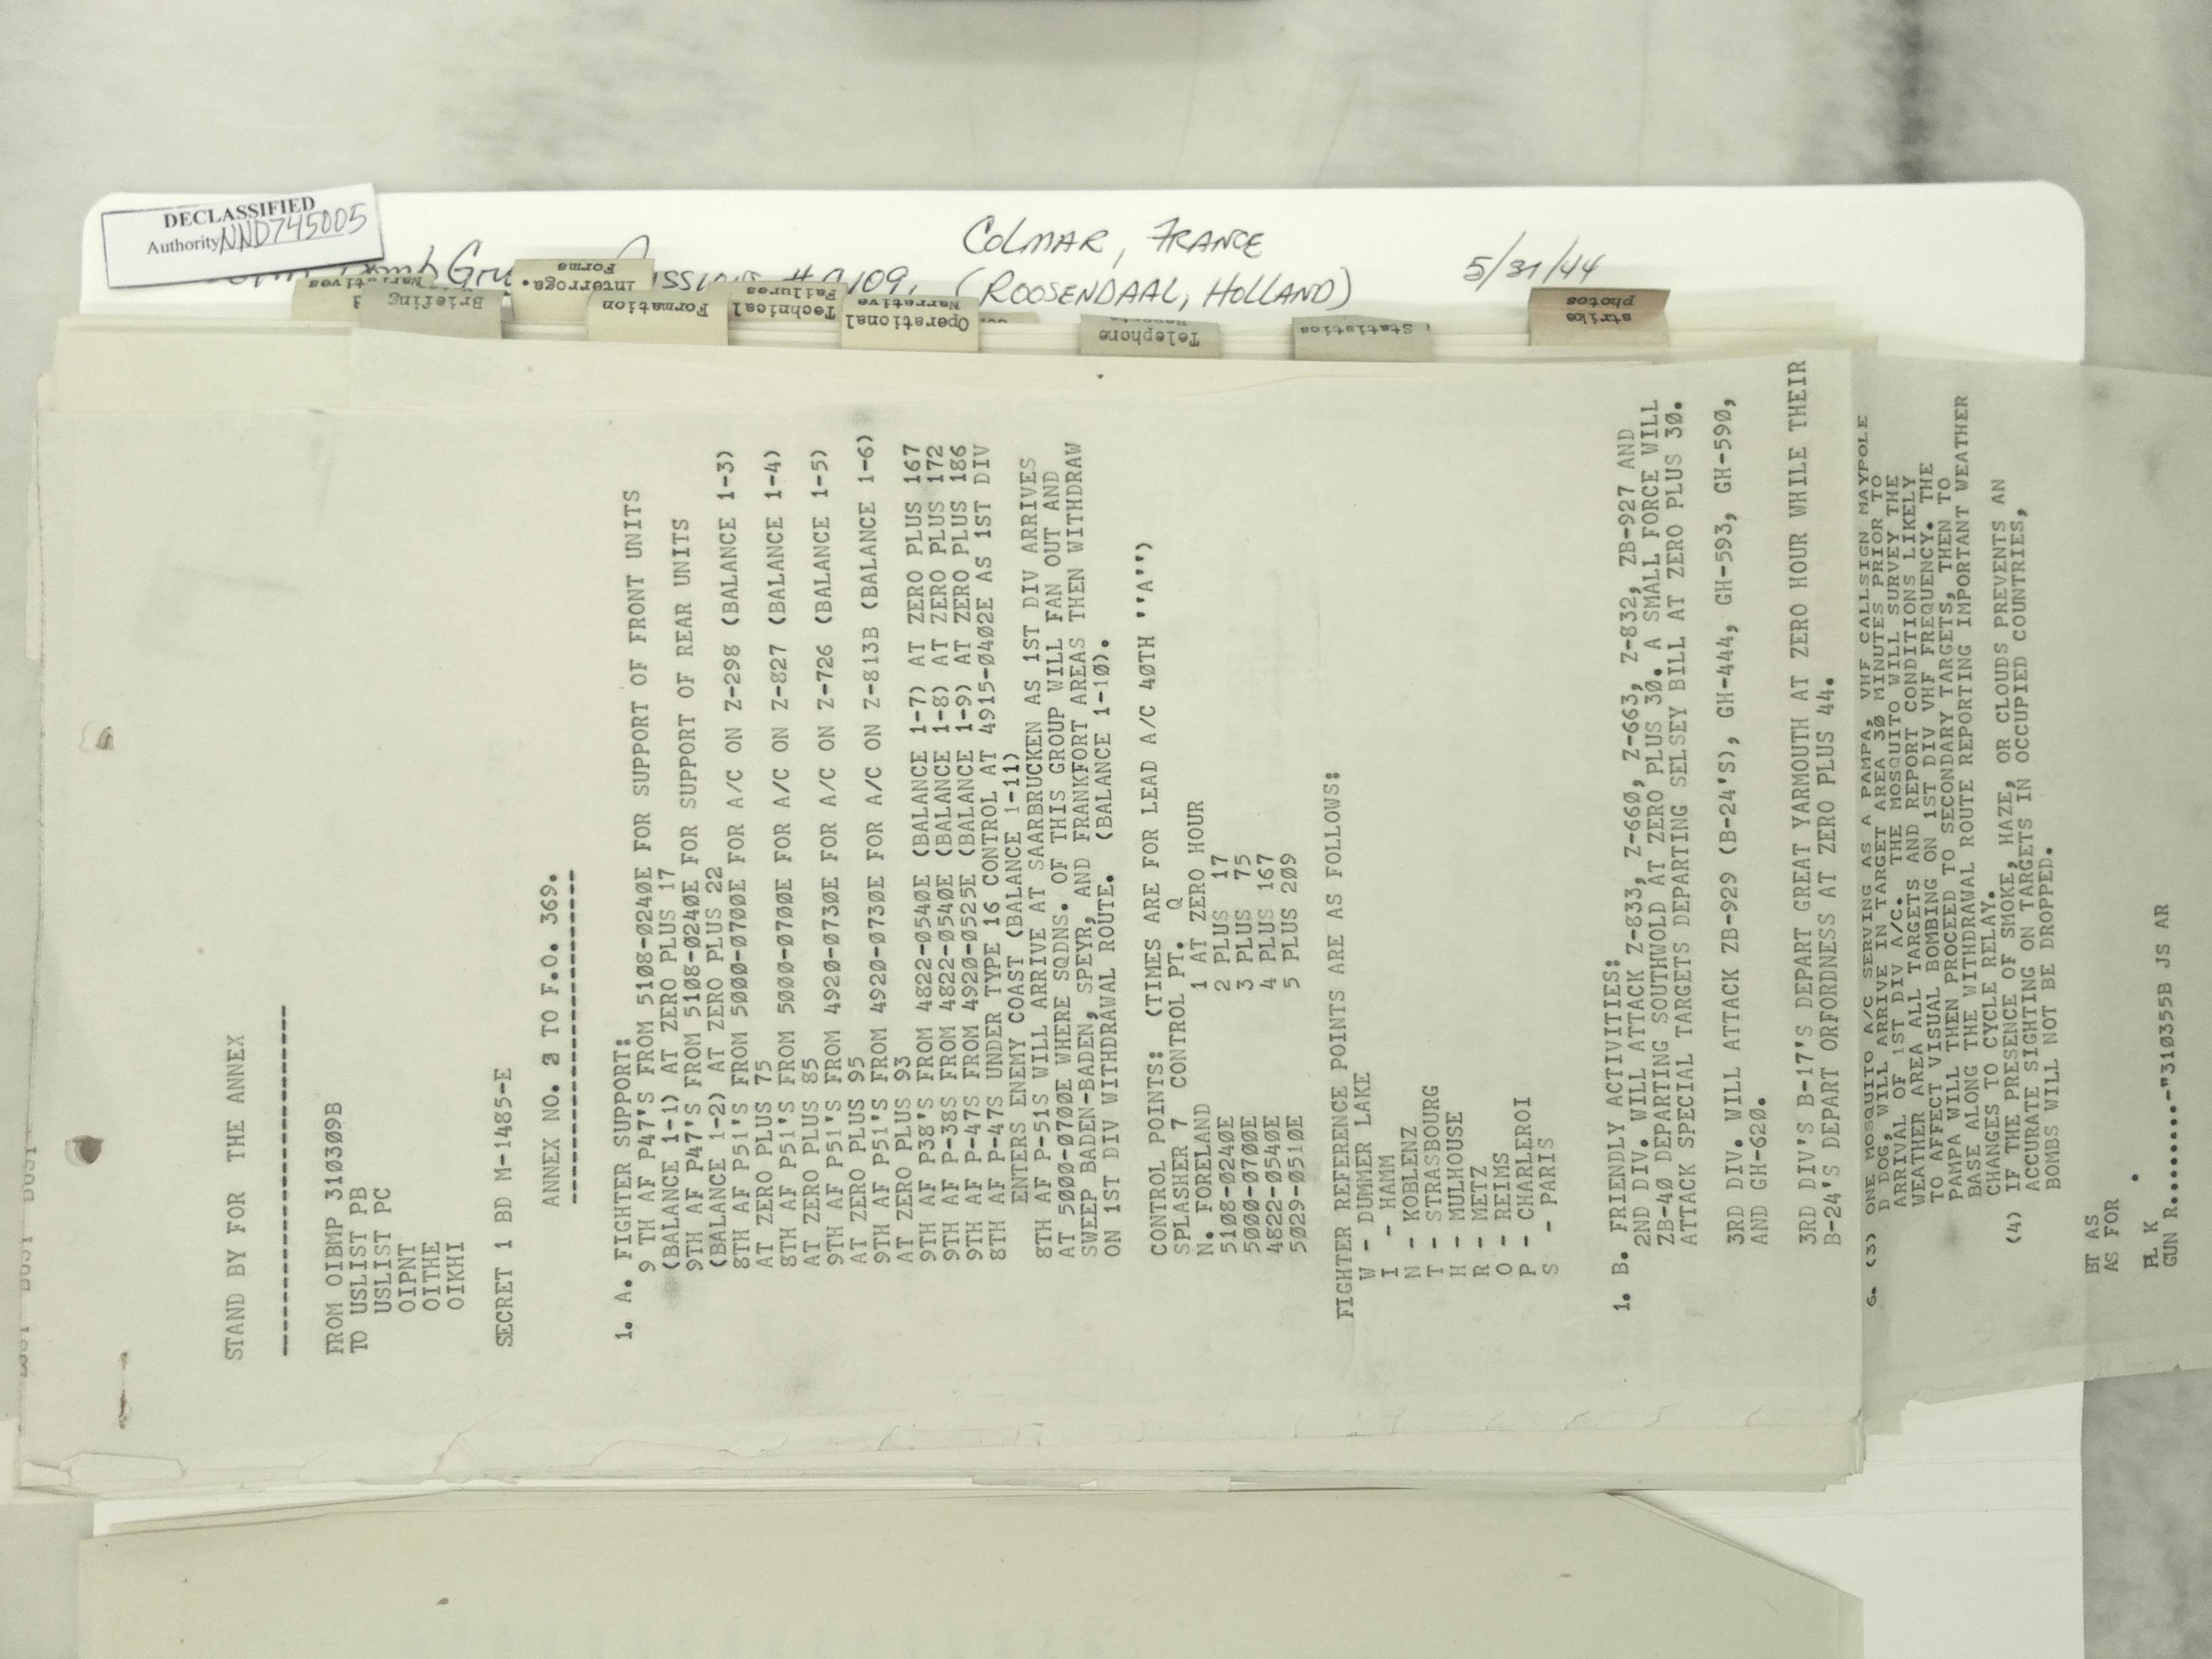 DECLASSIFIED
Authority NND745005
COLMAR, FRANCE
(ROOSENDAAL, HOLLAND)
5/31/44
Briefing
Interroga.
Forms
Formation
Technical
Failures
Operational
Narrative
Telephone
Statistics
strike
photos
STAND BY FOR THE ANNEX
FROM OIBMP 310309B
TO USLIST PB
USLIST PC
OIPNT
OITHE
OIKHI
SECRET 1 BD M-1485-E
ANNEX NO. 2 TO F.O. 369.
1. A. FIGHTER SUPPORT:
9 TH AF P47'S FROM 5108-0240E FOR SUPPORT OF FRONT UNITS
(BALANCE 1-1) AT ZERO PLUS 17
9TH AF P47'S FROM 5108-0240E FOR SUPPORT OF REAR UNITS
(BALANCE 1-2) AT ZERO PLUS 22
8TH AF P51'S FROM 5000-0700E FOR A/C ON Z-298 (BALANCE 1-3)
AT ZERO PLUS 75
8TH AF P51'S FROM 5000-0700E FOR A/C ON Z-827 (BALANCE 1-4)
AT ZERO PLUS 85
9TH AF P51'S FROM 4920-0730E FOR A/C ON Z-726 (BALANCE 1-5)
AT ZERO PLUS 95
9TH AF P51'S FROM 4920-0730E FOR A/C ON Z-813B (BALANCE 1-6)
AT ZERO PLUS 93
9TH AF P38'S FROM 4822-0540E (BALANCE 1-7) AT ZERO PLUS 167
9TH AF P-38S FROM 4822-0540E (BALANCE 1-8) AT ZERO PLUS 172
9TH AF P-47S FROM 4920-0525E (BALANCE 1-9) AT ZERO PLUS 186
8TH AF P-47S UNDER TYPE 16 CONTROL AT 4915-0402E AS 1ST DIV
ENTERS ENEMY COAST (BALANCE 1-11)
8TH AF P-51S WILL ARRIVE AT SAARBRUCKEN AS 1ST DIV ARRIVES
AT 5000-0700E WHERE SQDNS. OF THIS GROUP WILL FAN OUT AND
SWEEP BADEN-BADEN, SPEYR, AND FRANKFORT AREAS THEN WITHDRAW
ON 1ST DIV WITHDRAWAL ROUTE. (BALANCE 1-10).
CONTROL POINTS: (TIMES ARE FOR LEAD A/C 40TH ''A'')
SPLASHER 7 CONTROL PT. Q
N. FORELAND 1 AT ZERO HOUR
5108-0240E 2 PLUS 17
5000-0700E 3 PLUS 75
4822-0540E 4 PLUS 167
5029-0510E 5 PLUS 209
FIGHTER REFERENCE POINTS ARE AS FOLLOWS:
W - DUMMER LAKE
I - HAMM
N - KOBLENZ
T - STRASBOURG
H - MULHOUSE
R - METZ
O - REIMS
P - CHARLEROI
S - PARIS
1. B. FRIENDLY ACTIVITIES:
2ND DIV. WILL ATTACK Z-833, Z-660, Z-663, Z-832, ZB-927 AND
ZB-40 DEPARTING SOUTHWOLD AT ZERO PLUS 30. A SMALL FORCE WILL
ATTACK SPECIAL TARGETS DEPARTING SELSEY BILL AT ZERO PLUS 30.
3RD DIV. WILL ATTACK ZB-929 (B-24'S), GH-444, GH-593, GH-590,
AND GH-620.
3RD DIV'S B-17'S DEPART GREAT YARMOUTH AT ZERO HOUR WHILE THEIR
B-24'S DEPART ORFORDNESS AT ZERO PLUS 44.
G. (3) ONE MOSQUITO A/C SERVING AS A PAMPA, VHF CALLSIGN MAYPOLE
D DOG, WILL ARRIVE IN TARGET AREA 30 MINUTES PRIOR TO
ARRIVAL OF 1ST DIV A/C. THE MOSQUITO WILL SURVEY THE
WEATHER AREA ALL TARGETS AND REPORT CONDITIONS LIKELY
TO AFFECT VISUAL BOMBING ON 1ST DIV VHF FREQUENCY. THE
PAMPA WILL THEN PROCEED TO SECONDARY TARGETS, THEN TO
BASE ALONG THE WITHDRAWAL ROUTE REPORTING IMPORTANT WEATHER
CHANGES TO CYCLE RELAY.
(4) IF THE PRESENCE OF SMOKE, HAZE, OR CLOUDS PREVENTS AN
ACCURATE SIGHTING ON TARGETS IN OCCUPIED COUNTRIES,
BOMBS WILL NOT BE DROPPED.
BT AS
AS FOR
PL K
GUN R.......-"310355B JS AR